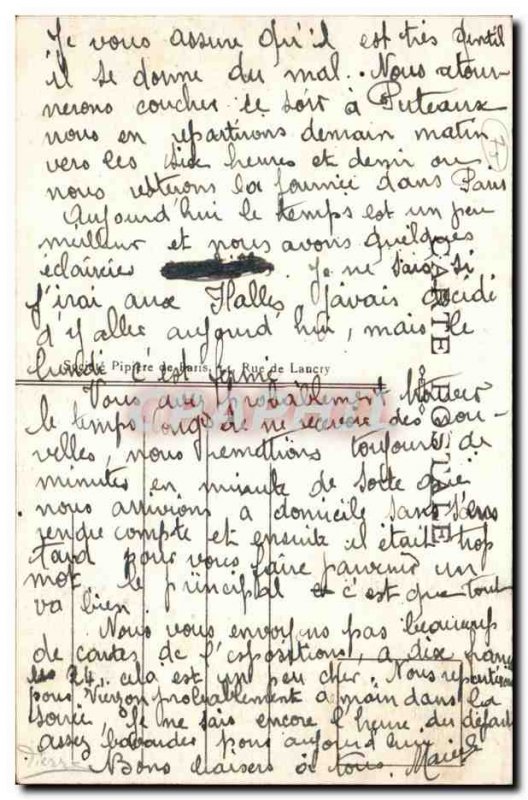 Je vous assure qu'il est très gentil
il se donne du mal. Nous retour-
nerons coucher ce soir à Puteaux
nous en repartirons demain matin
vers les six heures et demi ou
nous la journée dans Paris
Aujourd'hui le temps est un peu
meilleur et nous avons quelques
éclaircies. Je ne sais si
j'irai aux Halles j'avais décidé
d'y aller aujourd'hui, mais le
lundi c'est fermé
Société Pipière de Paris, Rue de Lancry
CARTE POSTALE
Vous avez probablement trouver
le temps long de ne recevoir des nou-
velles, nous remettions toujours de
minutes en minute de sorte que
nous arrivions à domicile sans s'en
rendre compte et ensuite il était trop
tard pour vous faire parvenir un
mot le principal c'est que tout
va bien.
Nous vous envoyons pas beaucoup
de cartes de l'exposition, à dix francs
les 24, cela est un peu cher. Nous repartirons
pour Vierzon probablement demain dans la
soirée. Je ne sais encore l'heure du départ
assez bavarder pour aujourd'hui
Bons baisers à tous.
CPAPHIL